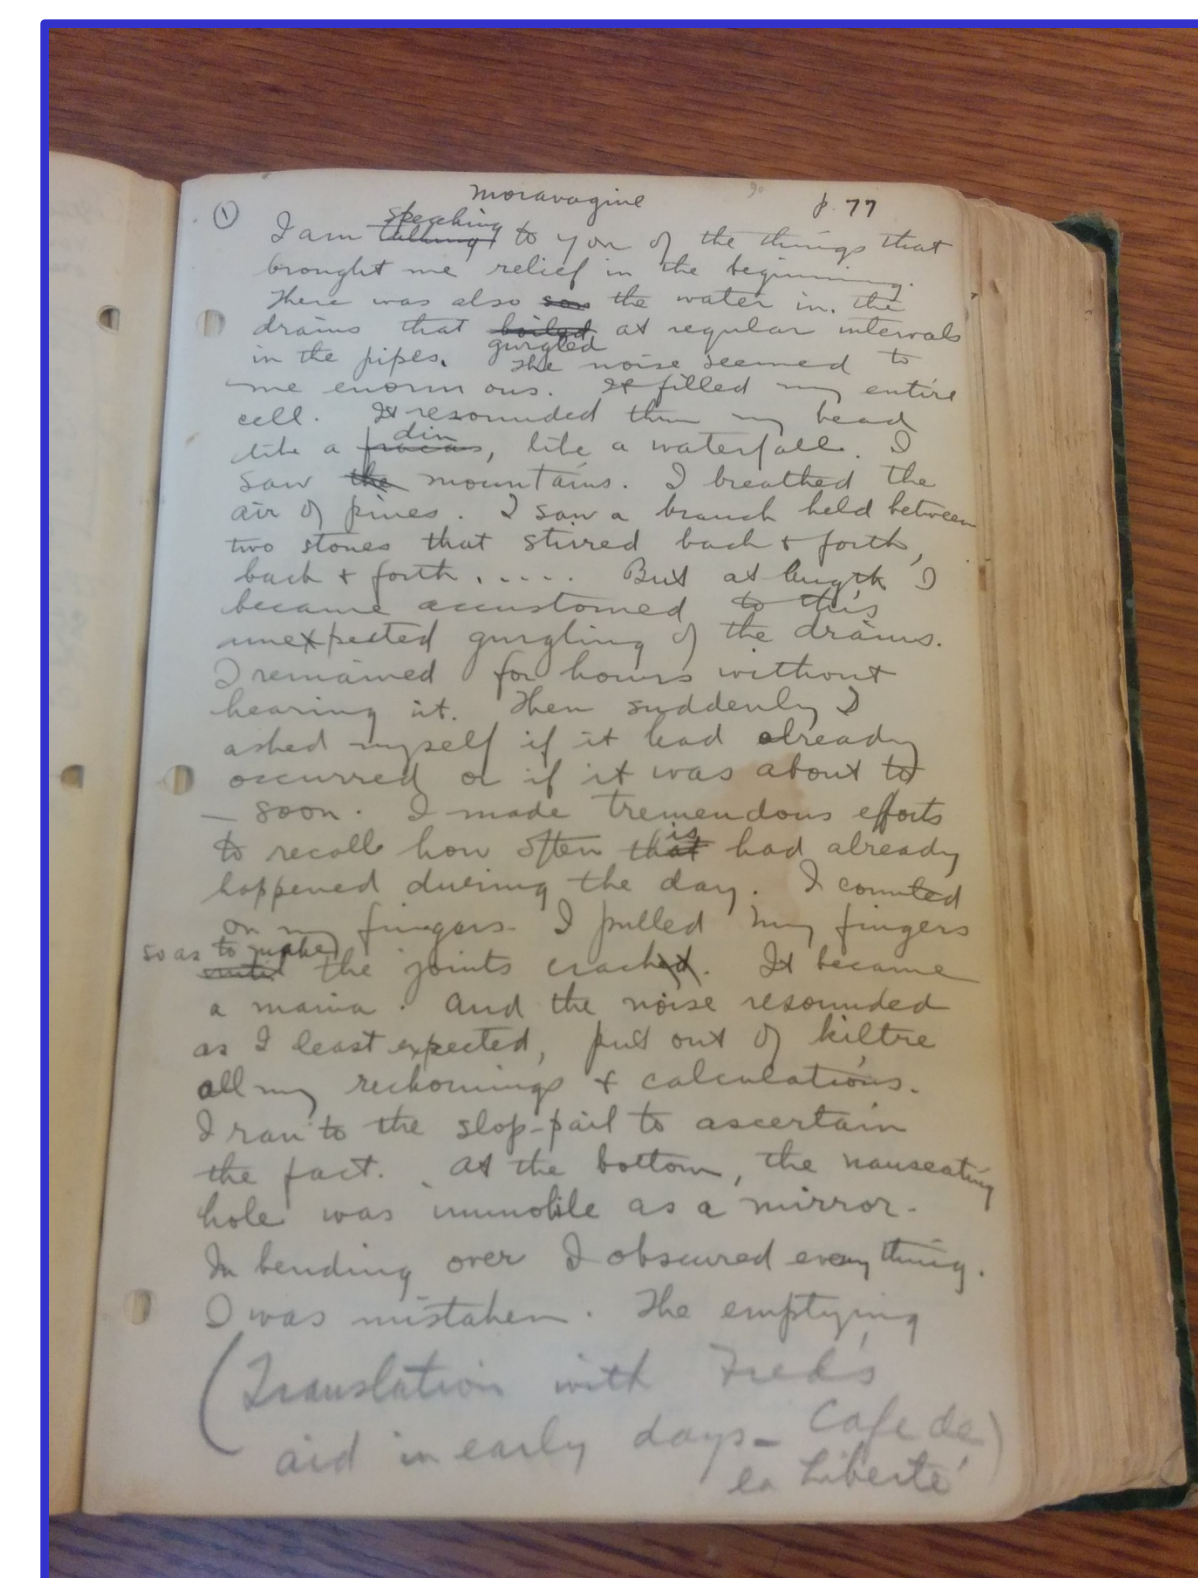 Moravagine p. 77
① I am ~~talking~~ speaking to you of the things that
brought me relief in the beginning.
There was also the water in the
drains that ~~boiled~~ gurgled at regular intervals
in the pipes. The noise seemed to
me enormous. It filled my entire
cell. It resounded thru my head
like a ~~fracas~~ din, like a waterfall. I
saw ~~the~~ mountains. I breathed the
air of pines. I saw a branch held between
two stones that stirred back & forth,
back & forth..... But at length I
became accustomed to this
unexpected gurgling of the drains.
I remained for hours without
hearing it. Then suddenly I
asked myself if it had already
occurred or if it was about to
— soon. I made tremendous efforts
to recall how often ~~that~~ is had already
happened during the day. I counted
on my fingers. I pulled my fingers
~~until~~ so as to make the joints crack. It became
a mania. And the noise resounded
as I least expected, put out of kiltre
all my reckonings & calculations.
I ran to the slop-pail to ascertain
the fact. At the bottom, the nauseating
hole was immobile as a mirror.
In bending over I obscured everything.
I was mistaken. The emptying
(Translation with Fred's
aid in early days — Cafe de
la Liberté)